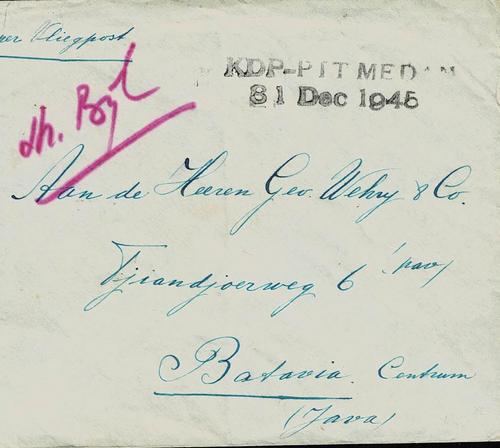 per Vliegpost
KDP-PTT MEDAN
31 Dec 1945
dh. Byl
Aan de Heeren Geo. Wehry & Co.
Tjiandjoerweg 6 (pav)
Batavia. Centrum
(Java)